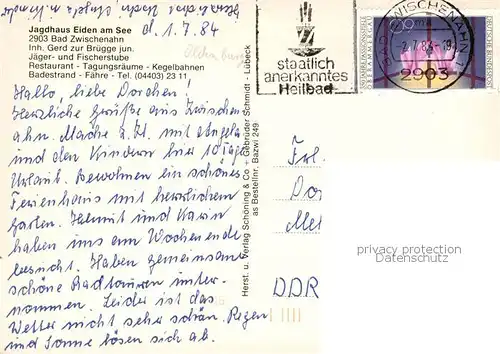 d. 1.7.84
Jagdhaus Eiden am See
2903 Bad Zwischenahn
Inh. Gerd zur Brügge jun.
Jäger- und Fischerstube
Restaurant - Tagungsräume - Kegelbahnen
Badestrand - Fähre - Tel. (04403) 23 11
Oldenburg
Hallo, liebe Dorchen!
Herzliche Grüße aus Zwischen
ahn. Mache z.Zt. mit Angela
und den Kindern hier 10 Tage
Urlaub. Bewohnen ein schönes
Ferienhaus mit herrlichem
Garten. Helmut und Karin
haben uns am Wochenende
besucht. Haben gemeinsame
schöne Radtouren unter-
nommen. Leider ist das
Wetter nicht sehr schön. Regen
und Sonne lösen sich ab.
Herst. u. Verlag Schöning & Co + Gebrüder Schmidt - Lübeck
as Bestellnr. Bazwi 249
staatlich
anerkanntes
Heilbad
BAD ZWISCHENAHN
2903
DEUTSCHE BUNDESPOST
Frl.
Do
Mei
DDR
privacy protection
Datenschutz